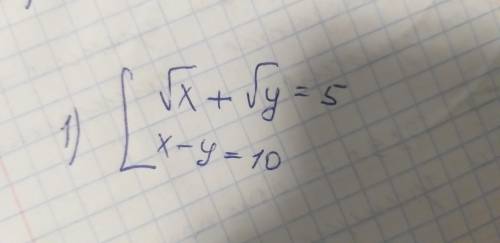 1) [ √x + √y = 5
x - y = 10